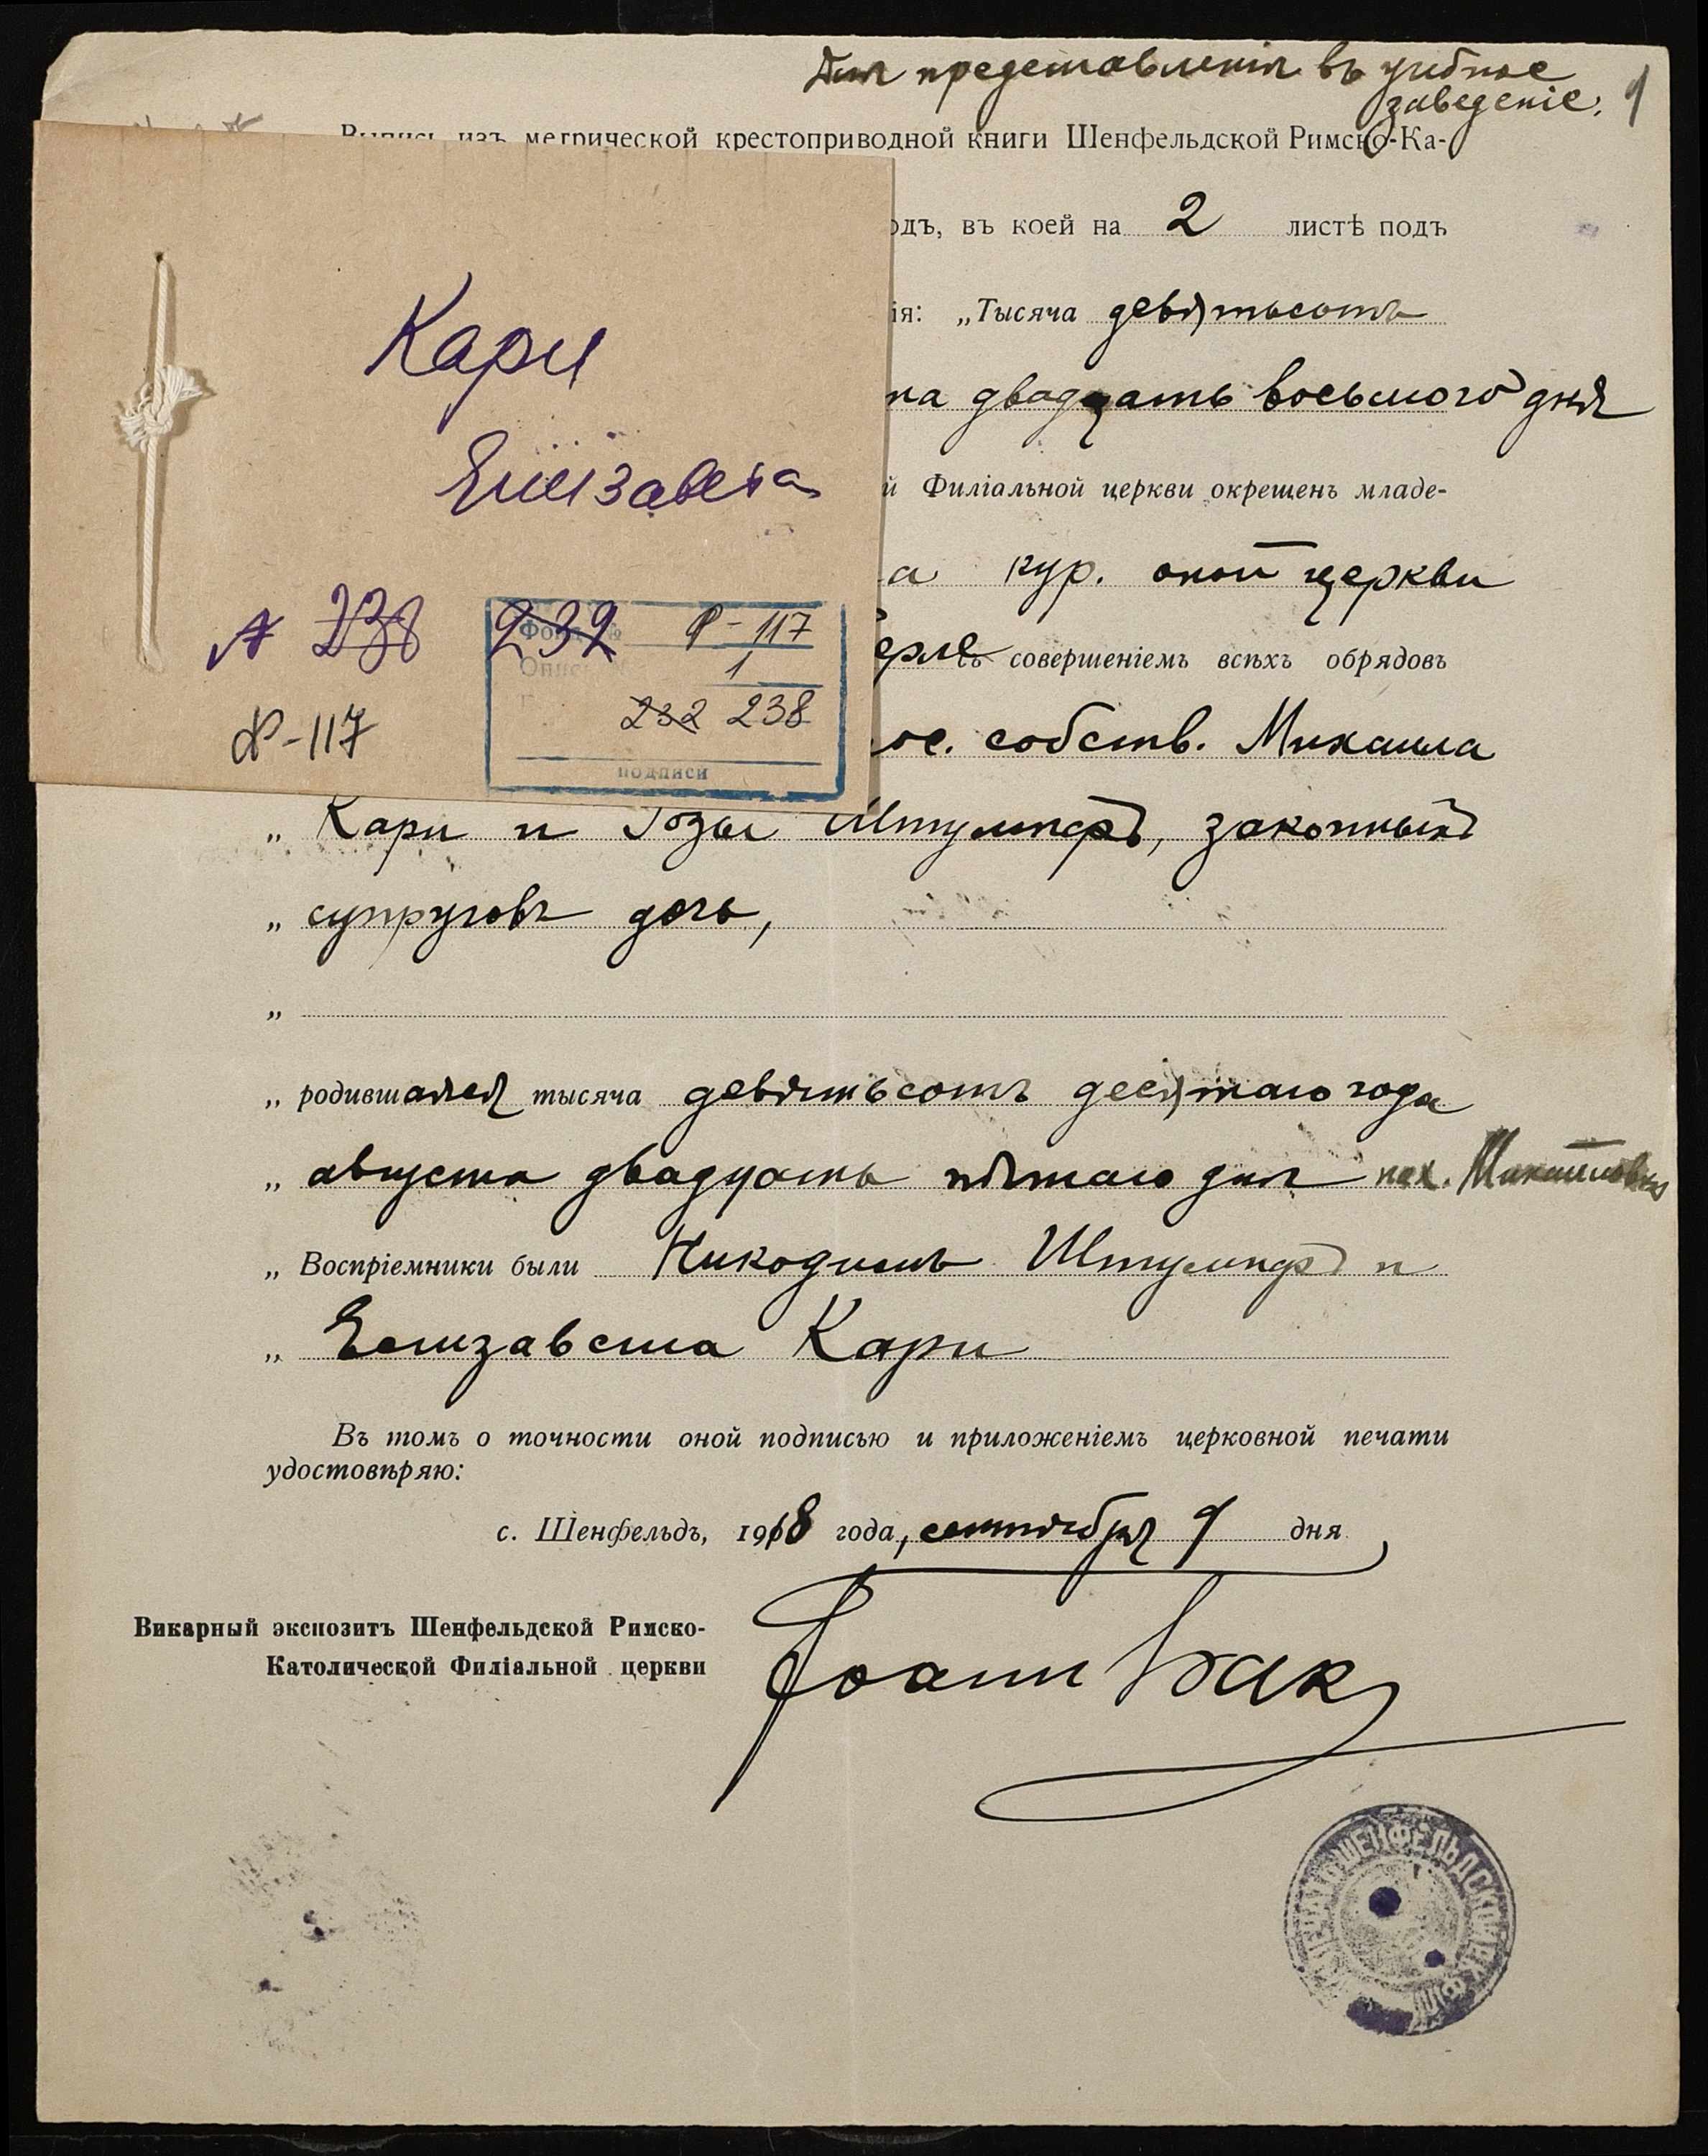 Для представленія въ учебное
заведеніе.
Выпись изъ метрической крестоприводной книги Шенфельдской Римско-Ка-
одъ, въ коей на 2 листѣ подъ
ія: „Тысяча девятьсотъ
та двадцать восьмого дня
й Филіальной церкви окрещенъ младе-
а кур. оной церкви
ерле съ совершеніемъ всѣхъ обрядовъ
ос. собств. Михаила
„ Кари и Розы Штумпфъ, законныхъ
„ супруговъ дочь,
„
„ родившаяся тысяча девятьсотъ десятаго года
„ августа двадцать пятаго дня пох. Михайловка
„ Воспріемники были Никодимъ Штумпфъ и
„ Елизавета Кари
Въ томъ о точности оной подписью и приложеніемъ церковной печати
удостовѣряю:
с. Шенфельдъ, 1918 года, сентября 9 дня
Викарный экспозитъ Шенфельдской Римско-
Католической Филіальной церкви
Іоанн Бак
Кари
Елизавета
238 232
Ф-117
Фонд №
Р-117
Опись
1
232 238
подписи